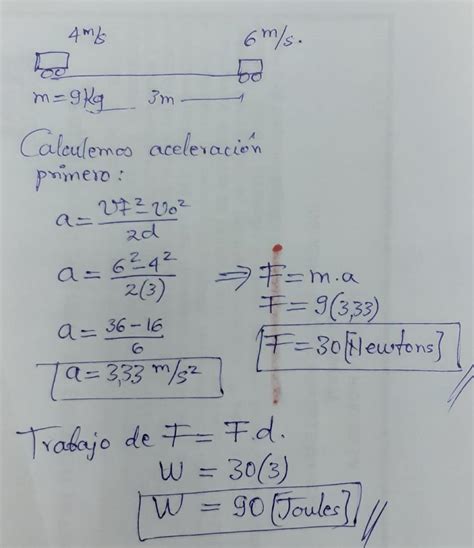 4 m/s 6 m/s.
m=9Kg 3m
Calculemos aceleración
primero:
a = Vf² - Vo² / 2d
a = 6² - 4² / 2(3)
a = 36 - 16 / 6
a = 3,33 m/s²
⇒ F = m.a
F = 9(3,33)
F = 30 [Newtons]
Trabajo de F = F.d.
W = 30(3)
W = 90 [Joules]